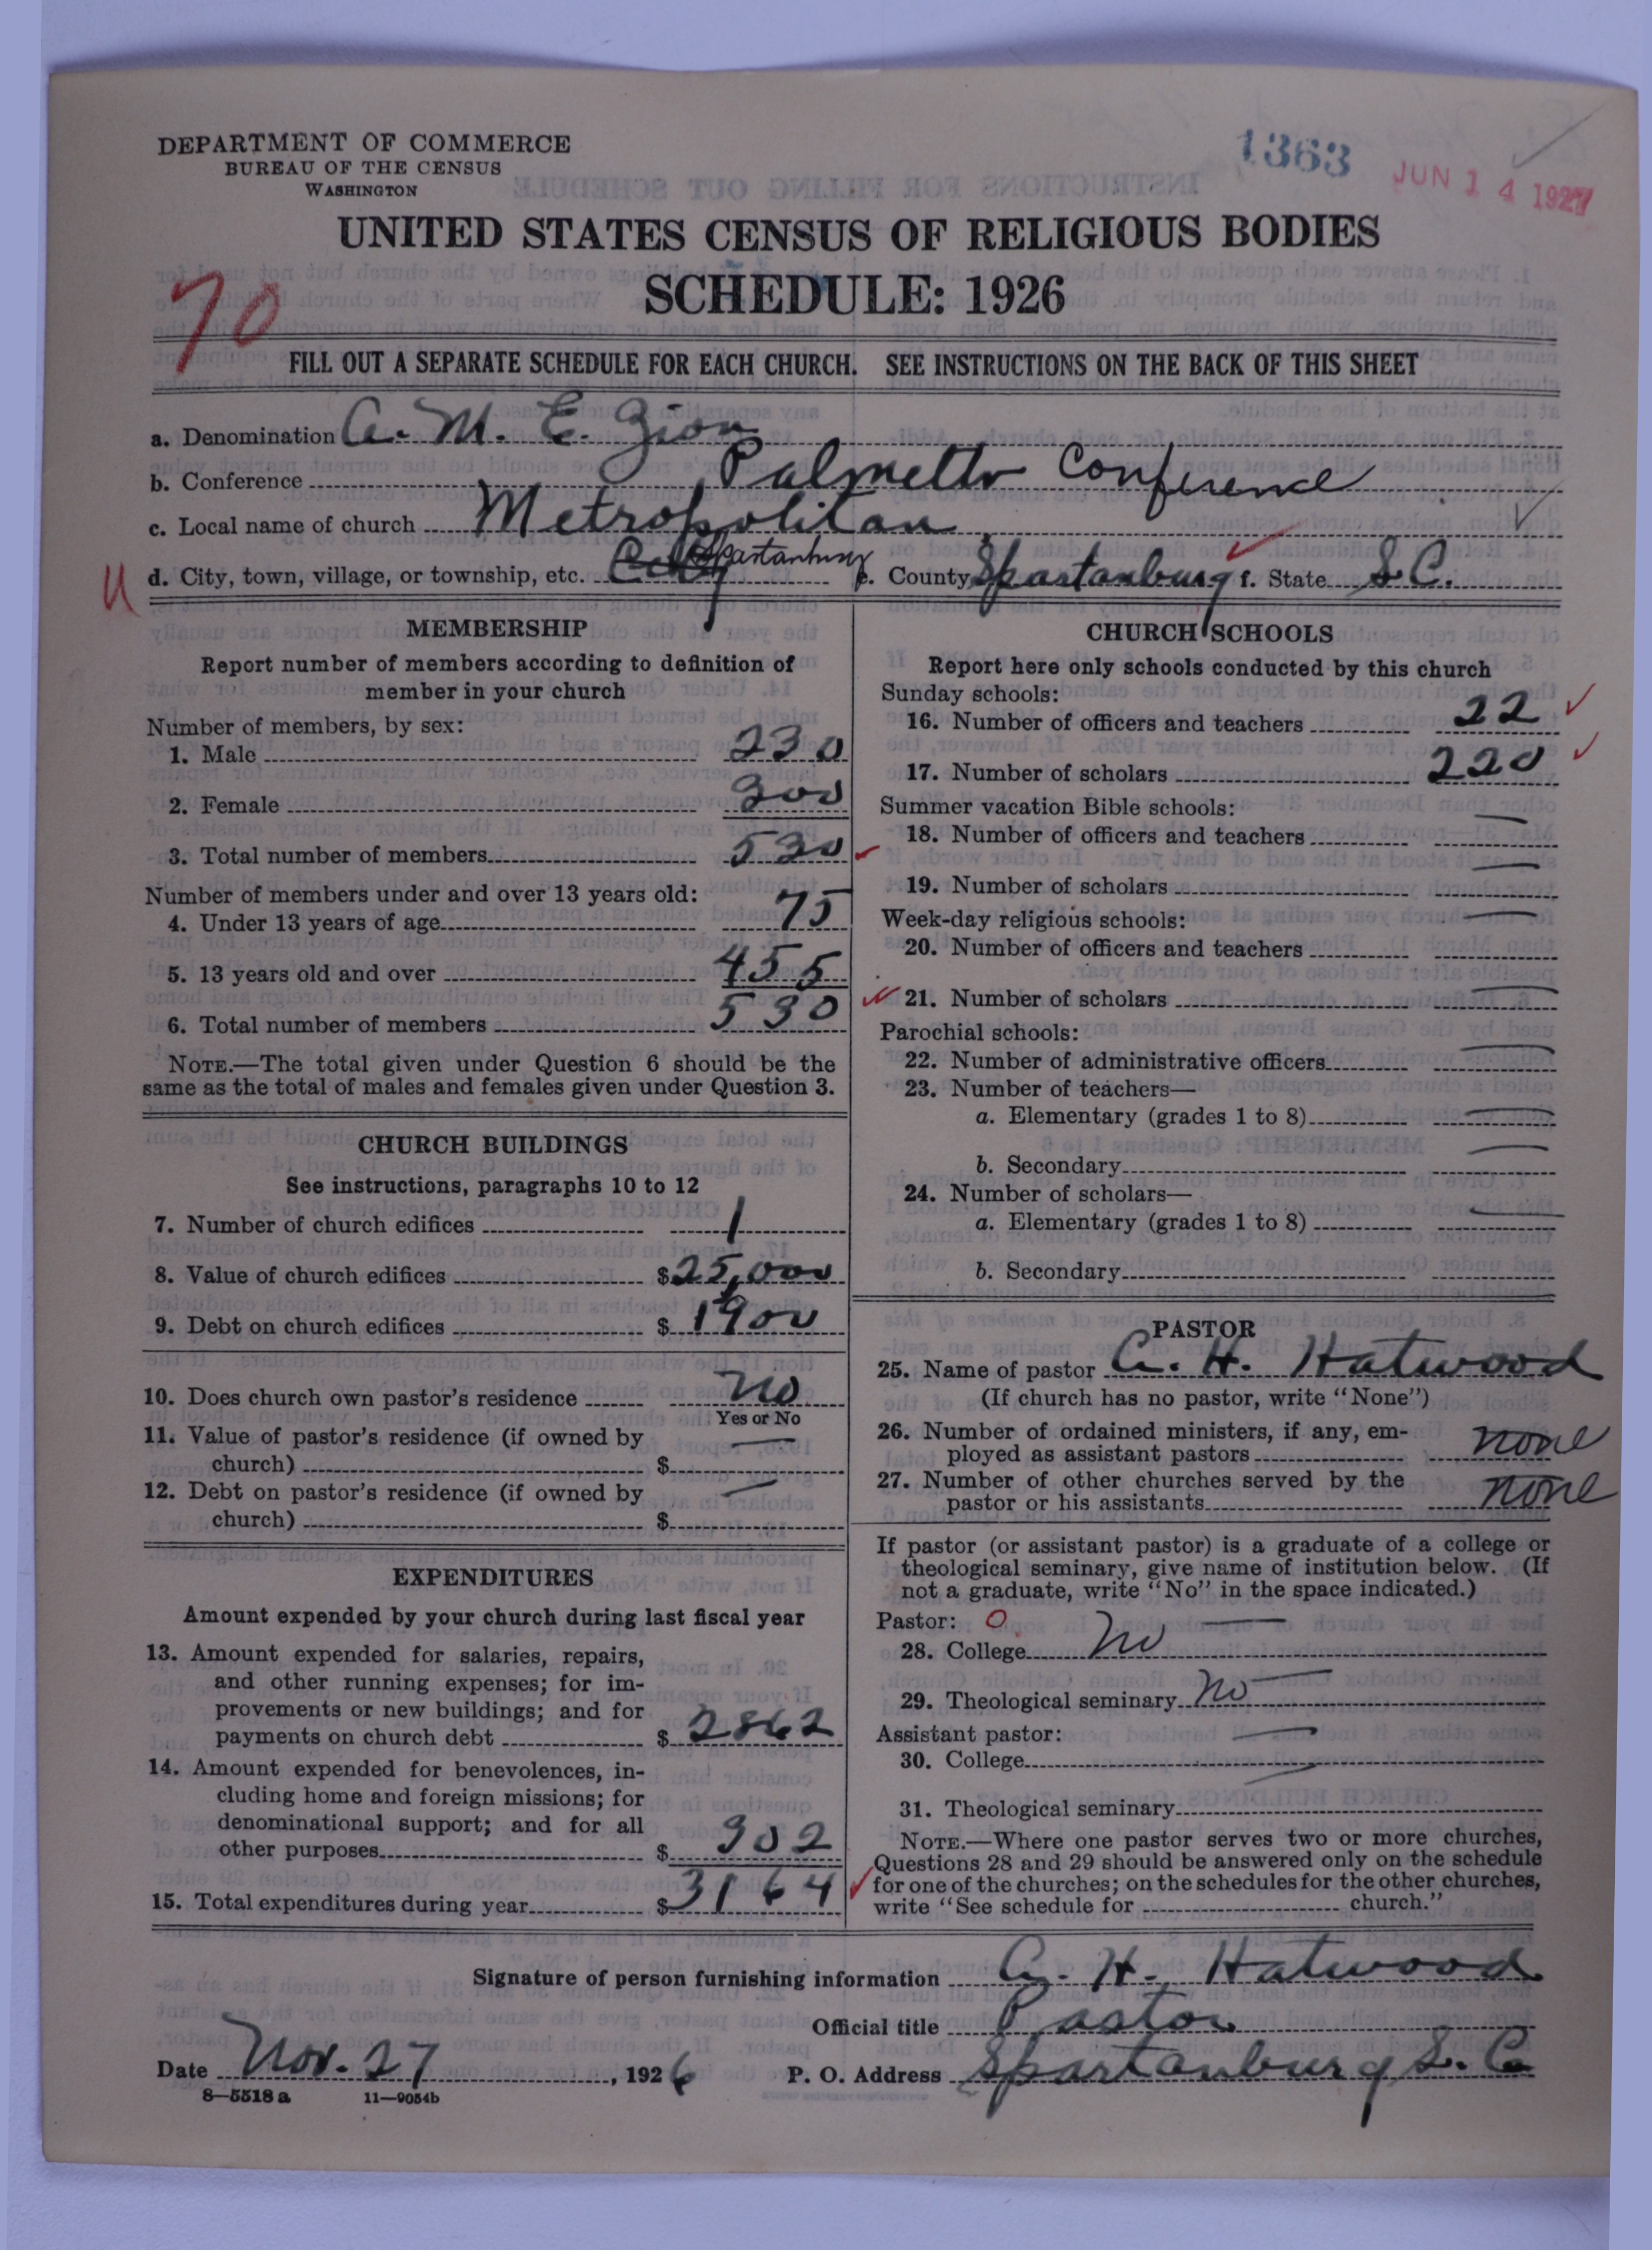 DEPARTMENT OF COMMERCE
BUREAU OF THE CENSUS
WASHINGTON
1363
JUN 14 1927
UNITED STATES CENSUS OF RELIGIOUS BODIES
SCHEDULE: 1926
70
FILL OUT A SEPARATE SCHEDULE FOR EACH CHURCH. SEE INSTRUCTIONS ON THE BACK OF THIS SHEET
a. Denomination A. M. E. Zion
b. Conference Palmetto Conference
c. Local name of church Metropolitan
d. City, town, village, or township, etc. City Spartanburg e. County Spartanburg f. State S.C.
MEMBERSHIP
Report number of members according to definition of
member in your church
Number of members, by sex:
1. Male 230
2. Female 300
3. Total number of members 530
Number of members under and over 13 years old:
4. Under 13 years of age 75
5. 13 years old and over 455
6. Total number of members 530
NOTE.—The total given under Question 6 should be the
same as the total of males and females given under Question 3.
CHURCH BUILDINGS
See instructions, paragraphs 10 to 12
7. Number of church edifices 1
8. Value of church edifices $25,000
9. Debt on church edifices $1900
10. Does church own pastor's residence No
Yes or No
11. Value of pastor's residence (if owned by
church) $ —
12. Debt on pastor's residence (if owned by
church) $ —
EXPENDITURES
Amount expended by your church during last fiscal year
13. Amount expended for salaries, repairs,
and other running expenses; for im-
provements or new buildings; and for
payments on church debt $2862
14. Amount expended for benevolences, in-
cluding home and foreign missions; for
denominational support; and for all
other purposes $302
15. Total expenditures during year $3164
CHURCH SCHOOLS
Report here only schools conducted by this church
Sunday schools:
16. Number of officers and teachers 22
17. Number of scholars 220
Summer vacation Bible schools:
18. Number of officers and teachers —
19. Number of scholars —
Week-day religious schools:
20. Number of officers and teachers —
21. Number of scholars —
Parochial schools:
22. Number of administrative officers —
23. Number of teachers—
a. Elementary (grades 1 to 8) —
b. Secondary —
24. Number of scholars—
a. Elementary (grades 1 to 8) —
b. Secondary
PASTOR
25. Name of pastor C. H. Hatwood
(If church has no pastor, write "None")
26. Number of ordained ministers, if any, em-
ployed as assistant pastors none
27. Number of other churches served by the
pastor or his assistants none
If pastor (or assistant pastor) is a graduate of a college or
theological seminary, give name of institution below. (If
not a graduate, write "No" in the space indicated.)
Pastor: 0
28. College No —
29. Theological seminary No —
Assistant pastor: —
30. College —
31. Theological seminary
NOTE.—Where one pastor serves two or more churches,
Questions 28 and 29 should be answered only on the schedule
for one of the churches; on the schedules for the other churches,
write "See schedule for church."
Signature of person furnishing information C. H. Hatwood
Official title Pastor
Date Nov. 27, 1926 P. O. Address Spartanburg S. C.
8—5518a 11—9054b